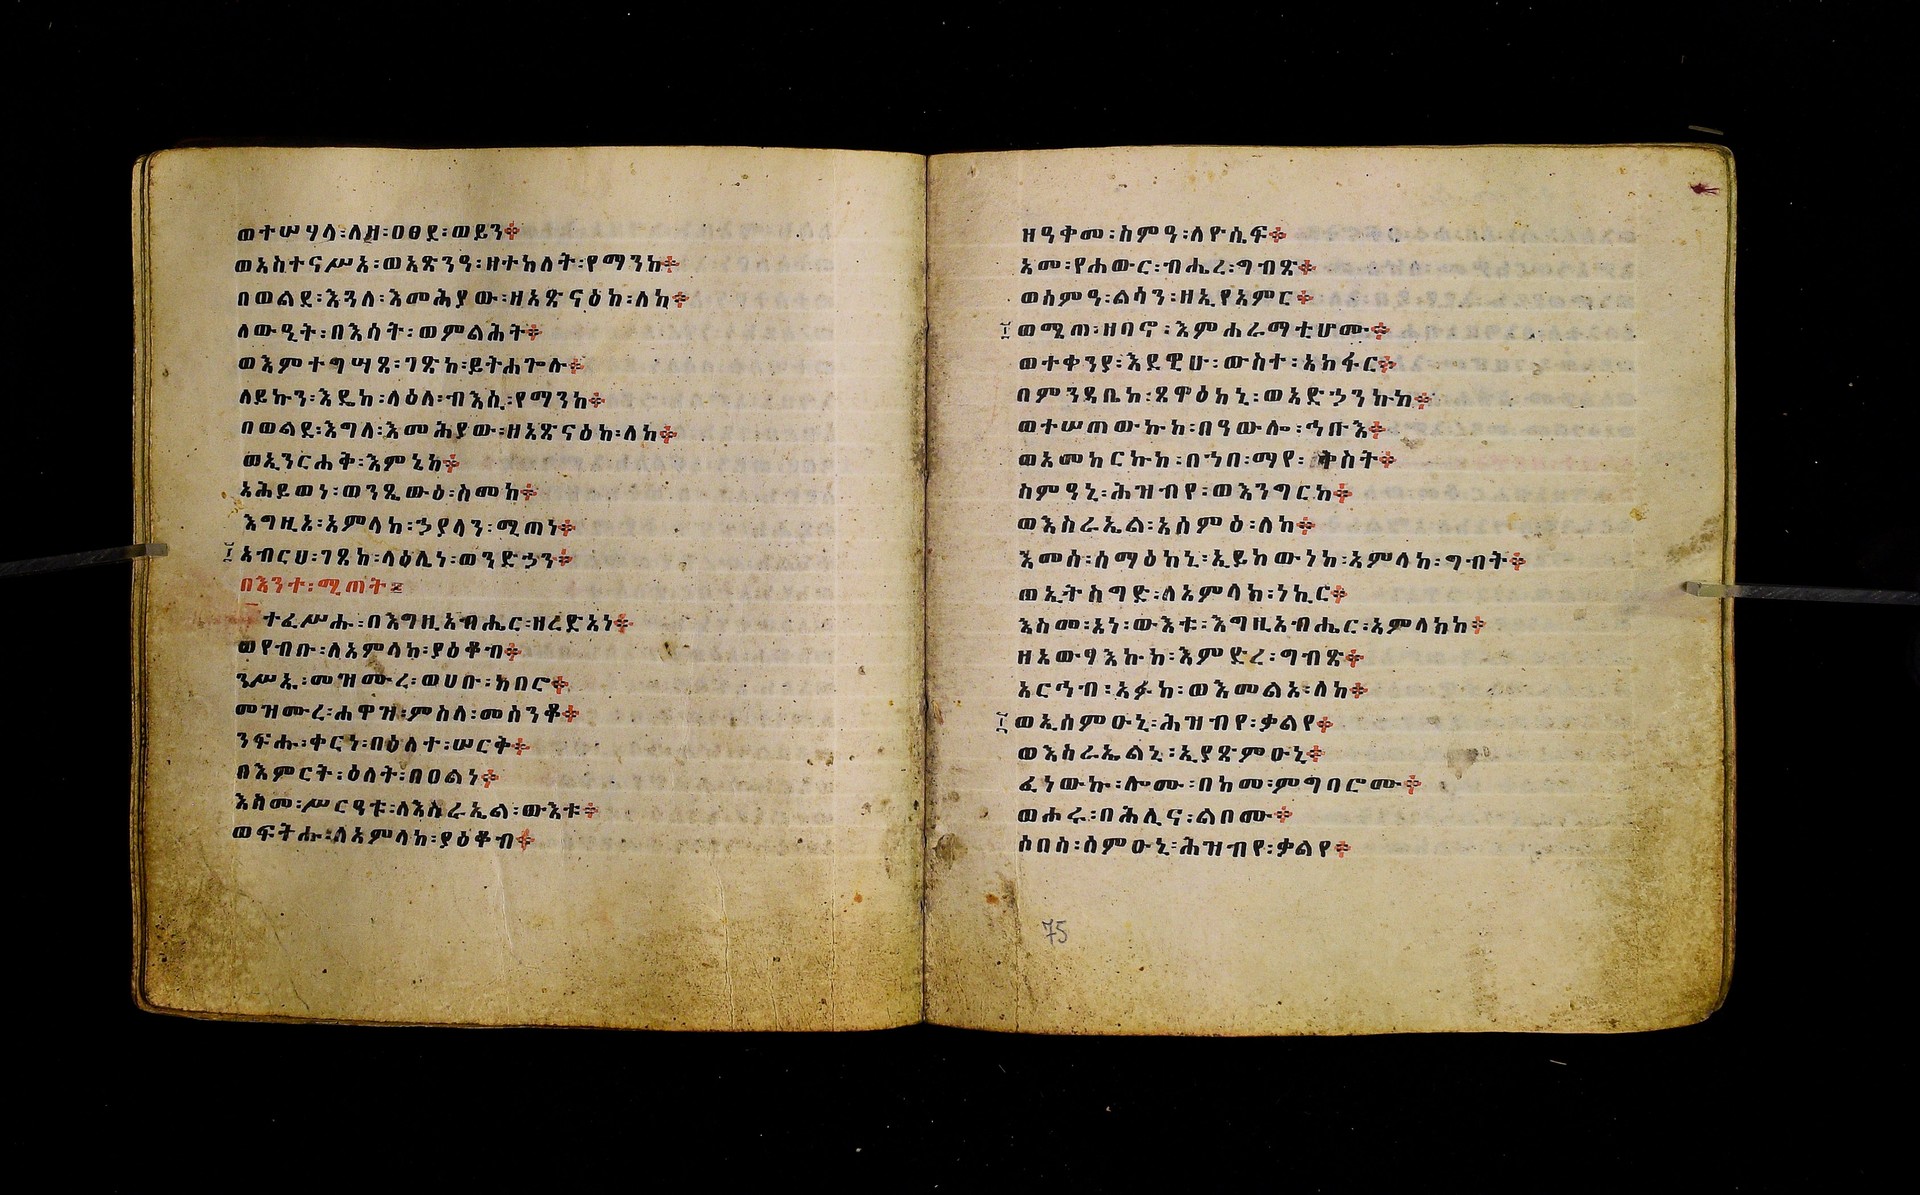 ወተሣሃላ፡ለዛ፡ዐፀደ፡ወይን፨
ወአስተናሥአ፡ወአጽንዓ፡ዘተከለት፡የማንከ፨
በወልደ፡እጓለ፡እመሕያው፡ዘአጽናዕከ፡ለከ፨
ለውዒት፡በእሳት፡ወምልሕት፨
ወእምተግሣጸ፡ገጽከ፡ይትሐጐሉ፨
ለይኩን፡እዴከ፡ላዕለ፡ብእሲ፡የማንከ፨
በወልደ፡እግለ፡እመሕያው፡ዘአጽናዕከ፡ለከ፨
ወኢንርሐቅ፡እምኔከ፨
አሕይወነ፡ወንጼውዕ፡ስመከ፨
እግዚአ፡አምላከ፡ኃያላን፡ሚጠነ፨
አብርሀ፡ገጸከ፡ላዕሌነ፡ወንድኅን፨
በእንተ፡ሚጠት፨
ተፈሥሑ፡በእግዚአብሔር፡ዘረድአነ፨
ወየብቡ፡ለአምላከ፡ያዕቆብ፨
ንሥኡ፡መዝሙረ፡ወሀቡ፡ከበሮ፨
መዝሙረ፡ሐዋዝ፡ምስለ፡መሰንቆ፨
ንፍሑ፡ቀርነ፡በዕለተ፡ሠርቅ፨
በእምርት፡ዕለት፡በዐልነ፨
እስመ፡ሥርዓቱ፡ለእስራኤል፡ውእቱ፨
ወፍትሑ፡ለአምላከ፡ያዕቆብ፨
ዘዓቀመ፡ስምዓ፡ለዮሴፍ፨
አመ፡የሐውር፡ብሔረ፡ግብጽ፨
ወሰምዓ፡ልሳን፡ዘኢየአምር፨
ወሜጠ፡ዘባኖ፡እምሐራማቲሆሙ፨
ወተቀንያ፡እደዊሁ፡ውስተ፡አክፋር፨
በምንዳቤከ፡ጸዋዕከኒ፡ወአድኃንኩከ፨
ወተሠጠውኩከ፡በዓውሎ፡ኅቡእ፨
ወአመከርኩከ፡በኀበ፡ማየ፡ቅስት፨
ስምዓኒ፡ሕዝብየ፡ወእንግርከ፨
ወእስራኤል፡አሰምዕ፡ለከ፨
እመሰ፡ሰማዕከኒ፡ኢይከውነከ፡አምላከ፡ግብት፨
ወኢትስግድ፡ለአምላክ፡ነኪር፨
እስመ፡አነ፡ውእቱ፡እግዚአብሔር፡አምላክከ፨
ዘአውፃእኩከ፡እምድረ፡ግብጽ፨
አርኅብ፡አፉከ፡ወእመልአ፡ለከ፨
ወኢሰምዑኒ፡ሕዝብየ፡ቃልየ፨
ወእስራኤልኒ፡ኢያጽምዑኒ፨
ፈነውኩ፡ሎሙ፡በከመ፡ምግባሮሙ፨
ወሐሩ፡በሕሊና፡ልቦሙ፨
ሶበሰ፡ሰምዑኒ፡ሕዝብየ፡ቃልየ፨
75